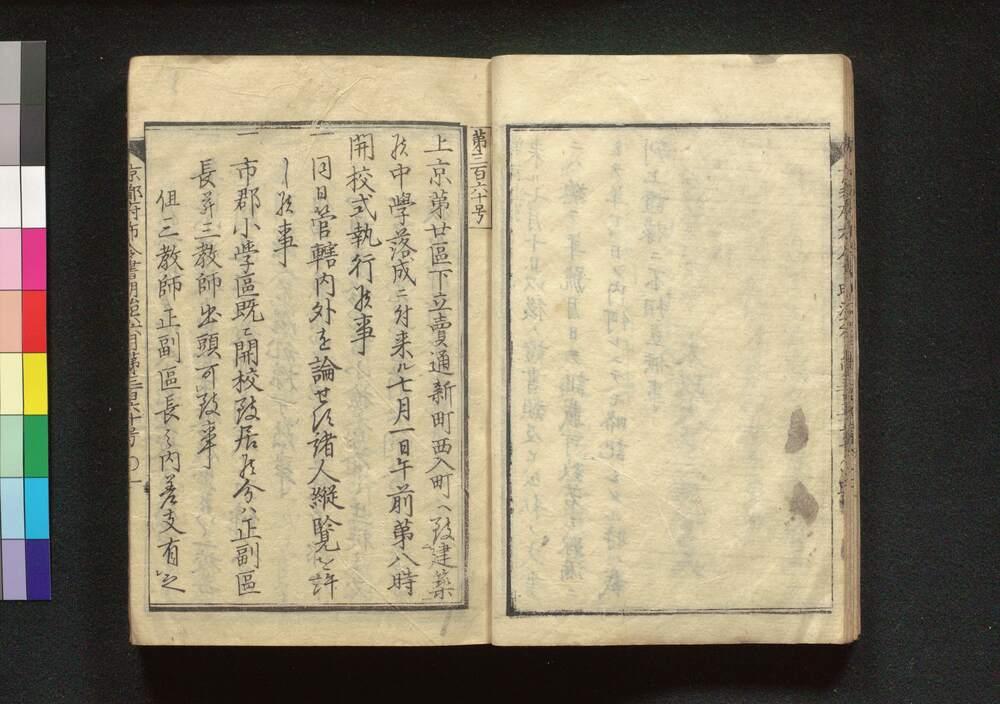 第三百六十号
上京第廿區下立賣通新町西入町ヘ致建築
候中學落成ニ付来ル七月一日午前第八時
開校式執行候事
一同日管轄内外を論せす諸人縦覧を許
し候事
一市郡小学區既ニ開校致居候分ハ正副區
長并三教師出頭可致事
但三教師正副區長之内差支有之
京都府布令書明治六年六月第三百六十号 〇一